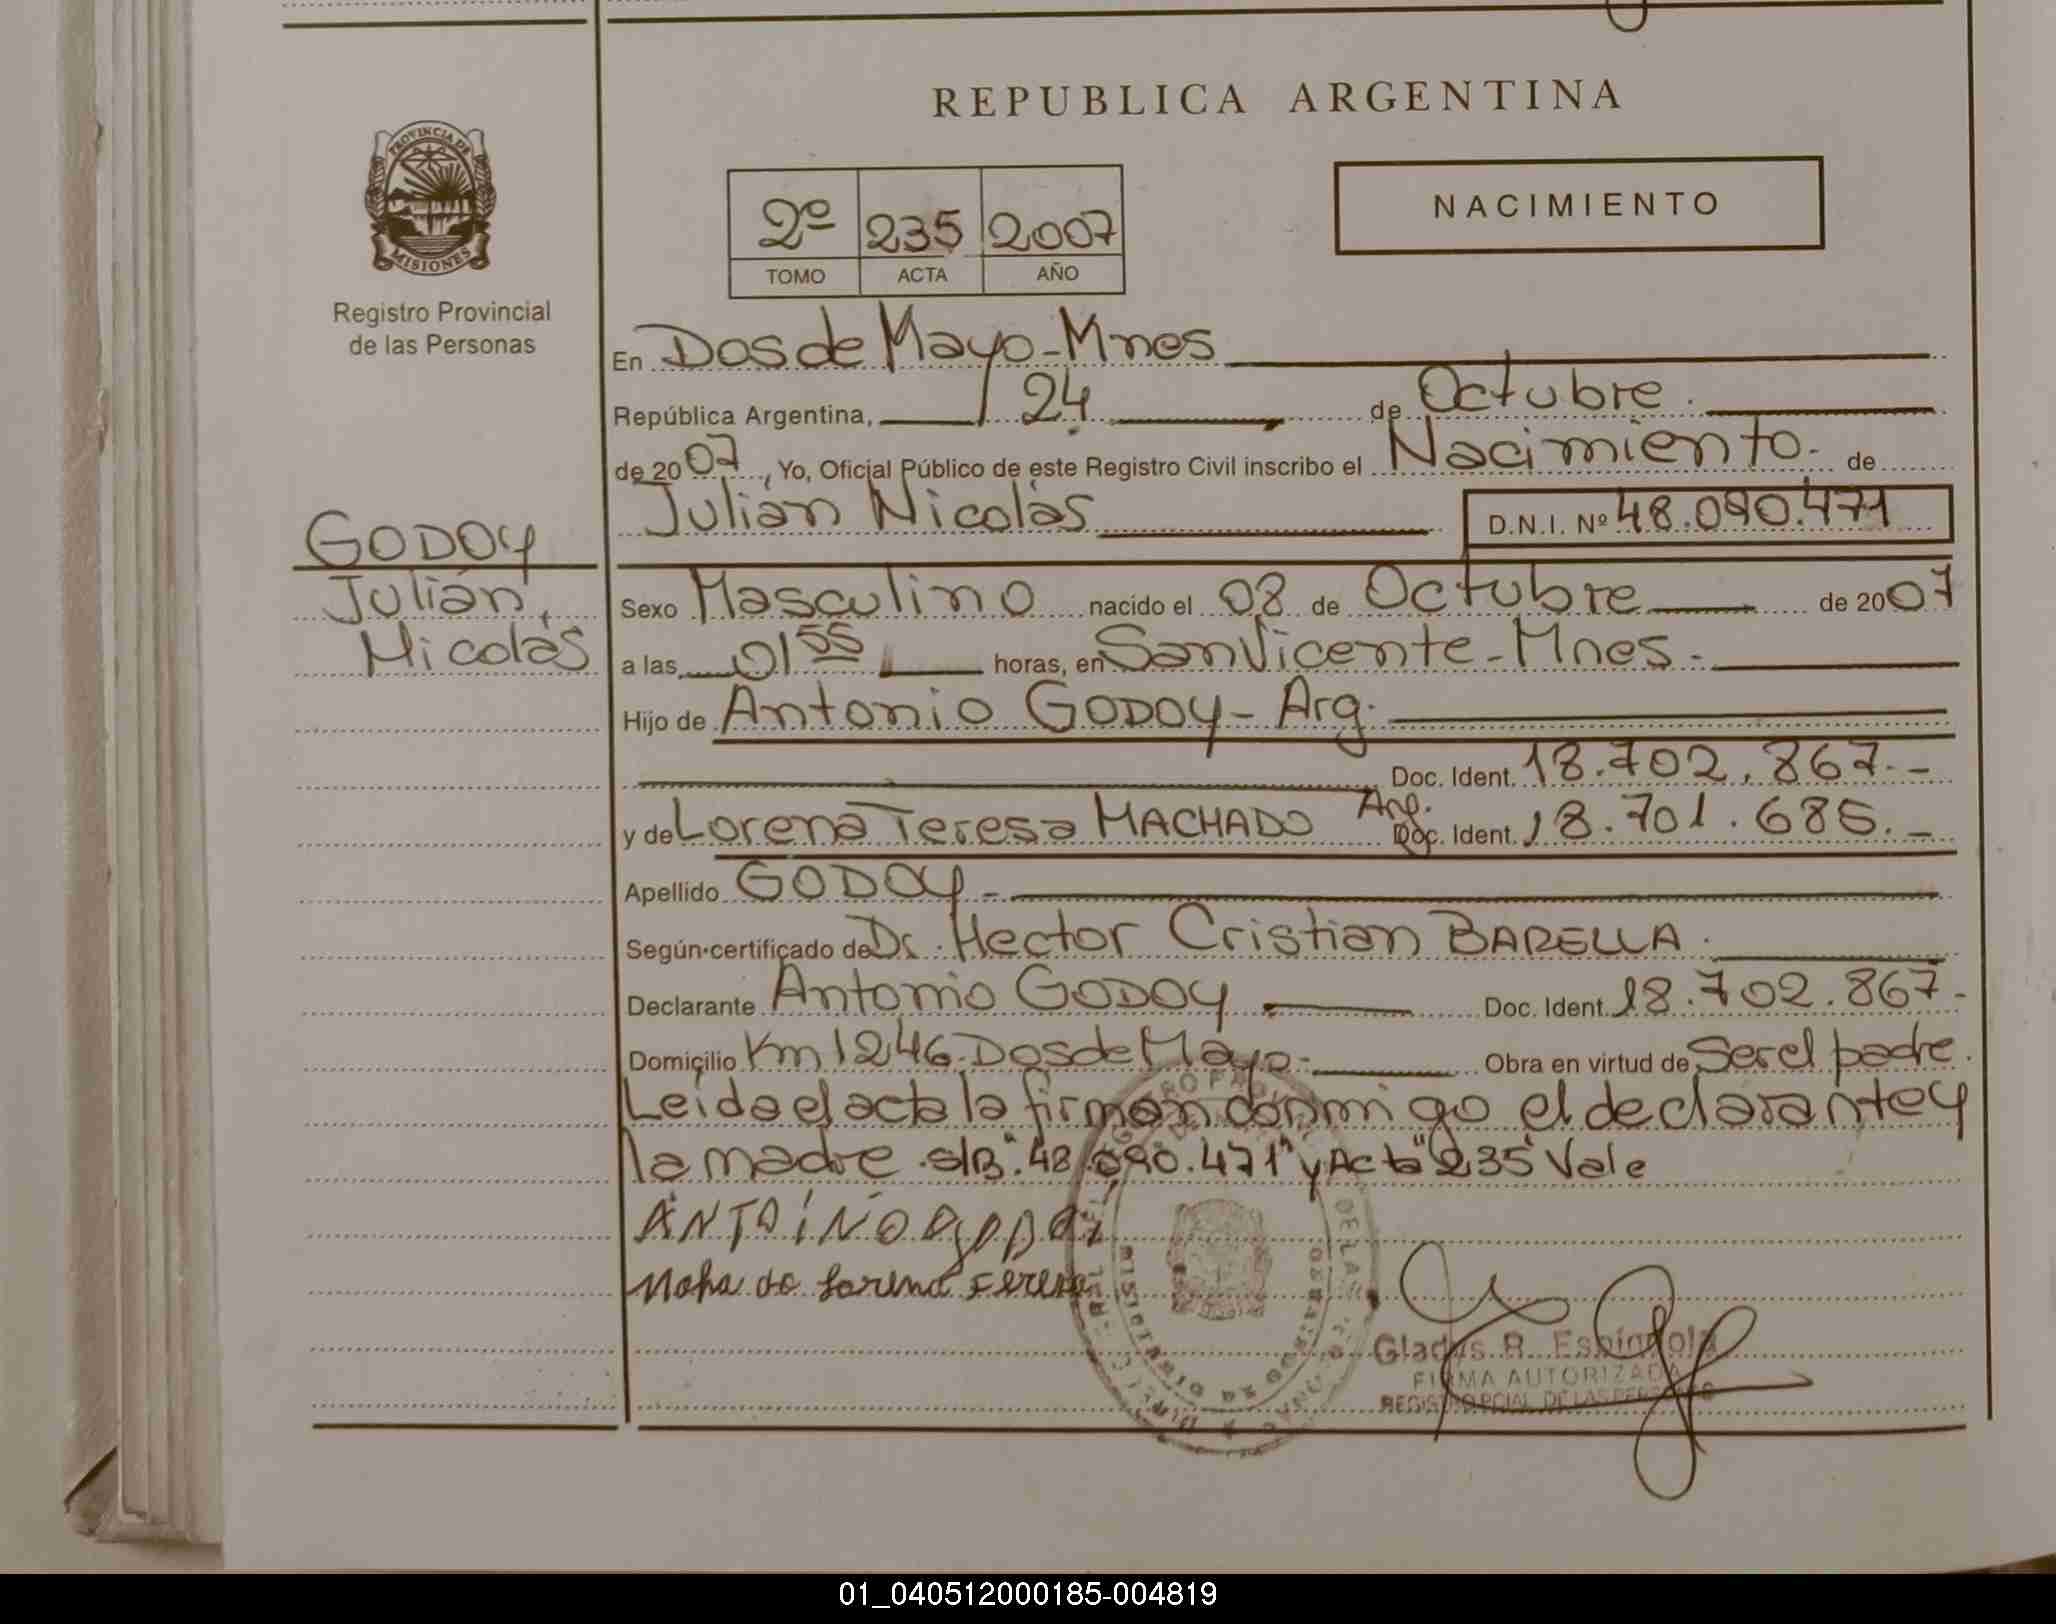 REPUBLICA ARGENTINA
PROVINCIA DE
MISIONES
Registro Provincial
de las Personas
2º 235 2007
TOMO ACTA AÑO
NACIMIENTO
En Dos de Mayo - Mnes
República Argentina, 24 de Octubre
de 2007, Yo, Oficial Público de este Registro Civil inscribo el Nacimiento. de
Julián Nicolás D.N.I. Nº 48.090.471
GODOY
Julián,
Nicolás
Sexo Masculino nacido el 08 de Octubre de 2007
a las 01 55 horas, en San Vicente - Mnes.-
Hijo de Antonio GODOY - Arg.
Doc. Ident. 18.702.867.-
y de Lorena Teresa MACHADO Arg. Doc. Ident. 18.701.685.-
Apellido GODOY -
Según certificado de Dr. Hector Cristian BARELLA.
Declarante Antonio GODOY Doc. Ident. 18.702.867.-
Domicilio Km 1246. Dos de Mayo.- Obra en virtud de Ser el padre.
Leída el acta la firman conmigo el declarante y
la madre. s/B: "48.090.471" y Acta "235" Vale
MINISTERIO DE GOBIERNO
Gladys R. Espíndola
FIRMA AUTORIZADA
REGISTRO PCIAL. DE LAS PERSONAS
01_040512000185-004819